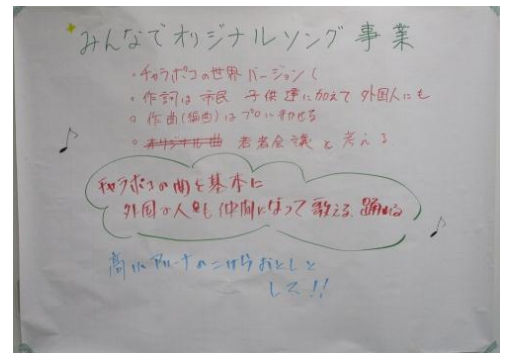 みんなでオリジナルソング事業
・チャラボコの世界バージョン
・作詞は 市民 子供達に加えて 外国人にも
・作曲(編曲)はプロに
・オリジナル曲 若者会議と考える
チャラボコの曲を基本に
外国の人も仲間になって歌える、踊れる
こけらおとしと
して!!